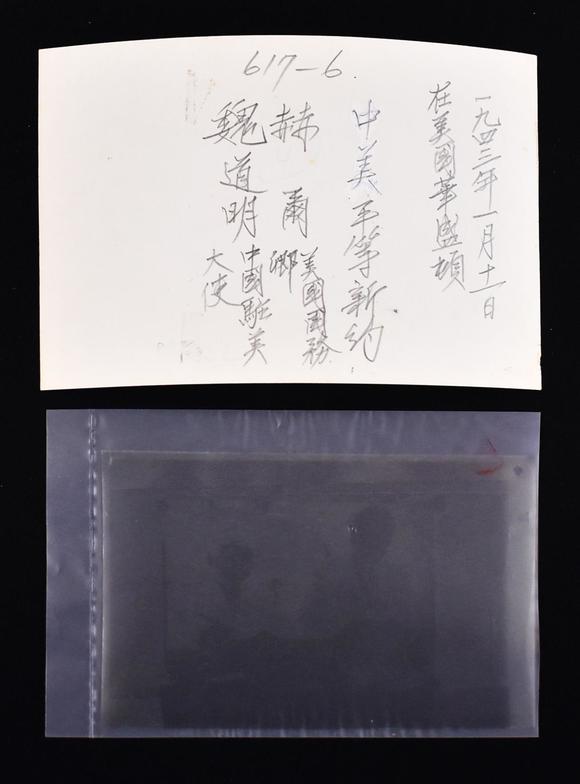 617-6
一九四三年一月十一日
在美國華盛頓
中美平等新約
赫爾 美國國務卿
魏道明 中國駐美大使